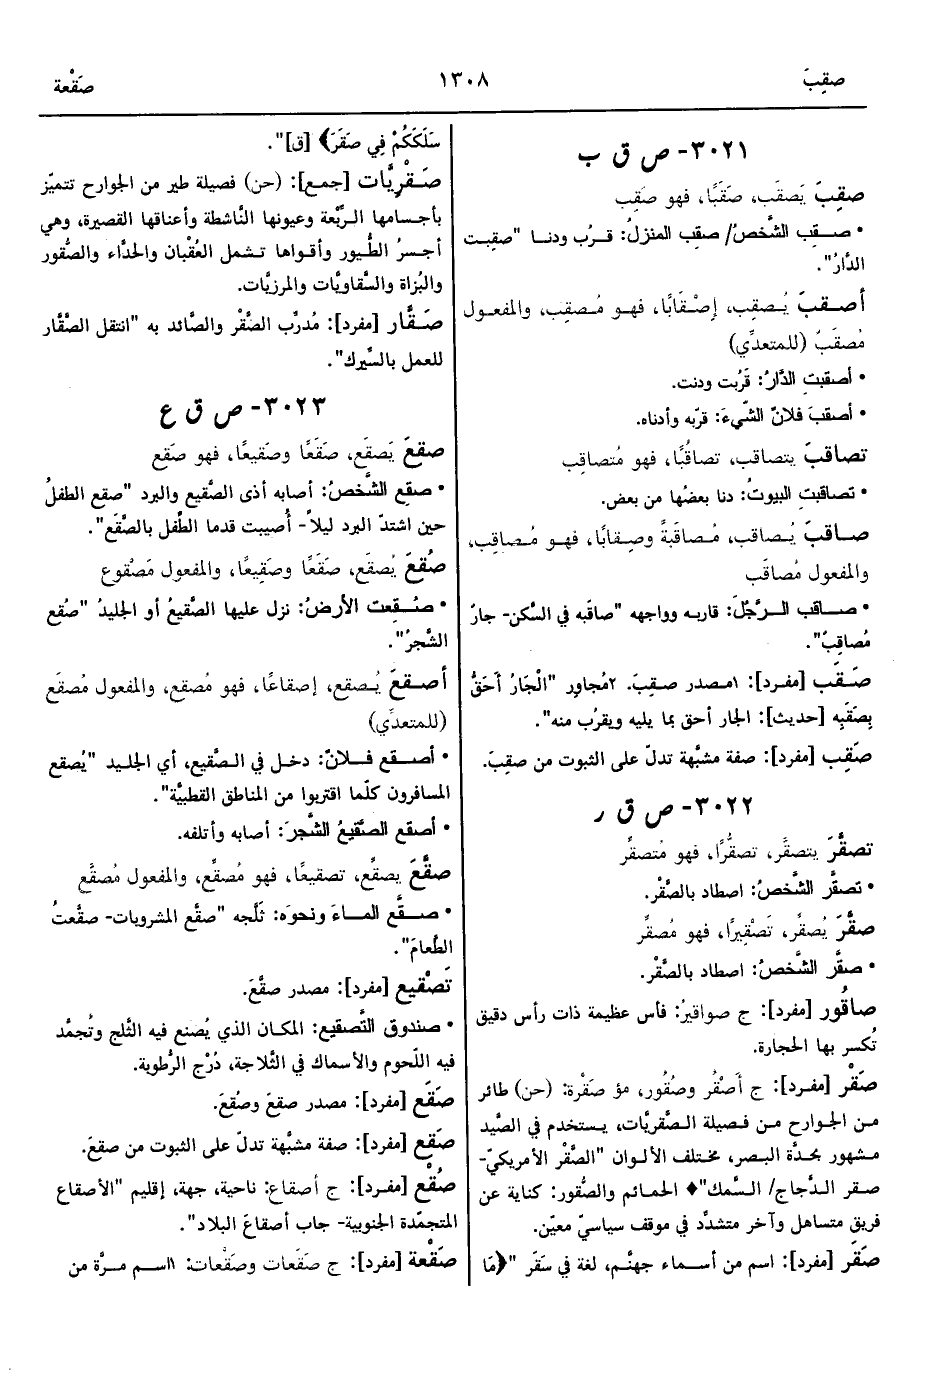 صقِبَ
١٣٠٨
صَقْعة
٣٠٢١- ص ق ب
صقِبَ يَصقَب، صَقَبًا، فهو صَقِب
• صقِب الشَّخصُ/ صقِب المنزلُ: قرُب ودنا "صقِبت
الدَّارُ".
أصقبَ يُصقِب، إصْقابًا، فهو مُصقِب، والمفعول
مُصقَبٌ (للمتعدِّي)
• أصقبت الدَّارُ: قَرُبت ودنت.
• أصقبَ فلانٌ الشَّيءَ: قرّبه وأدناه.
تصاقبَ يتصاقب، تصاقُبًا، فهو مُتصاقِب
• تصاقبت البيوتُ: دنا بعضُها من بعض.
صاقبَ يُصاقب، مُصاقَبةً وصِقابًا، فهو مُصاقِب،
والمفعول مُصاقَب
• صاقب الرَّجُلَ: قاربه وواجهه "صاقَبه في السَّكن- جارٌ
مُصاقِبٌ".
صَقَب [مفرد]: ١مصدر صقِبَ. ٢مُجاوِر "الْجَارُ أَحَقُّ
بِصَقَبِه [حديث]: الجار أحق بما يليه ويقرُب منه".
صَقِب [مفرد]: صفة مشبَّهة تدلّ على الثبوت من صقِبَ.
٣٠٢٢- ص ق ر
تصقَّرَ يتصقَّر، تصقُّرًا، فهو مُتصقِّر
• تصقَّر الشَّخصُ: اصطاد بالصَّقْر.
صقَّرَ يُصقِّر، تَصْقِيرًا، فهو مُصقِّر
• صقَّر الشَّخصُ: اصطاد بالصَّقْر.
صاقُور [مفرد]: ج صواقيرُ: فأس عظيمة ذات رأس دقيق
تُكسر بها الحجارة.
صَقْر [مفرد]: ج أَصْقُر وصُقُور، مؤ صَقْرة: (حن) طائر
من الجوارح من فصيلة الصقريَّات، يستخدم في الصَّيد
مشهور بحدَّة البصر، مختلف الألوان "الصَّقْر الأمريكيّ-
صقر الدَّجاج/ السَّمك"♦ الحمائم والصُّقور: كناية عن
فريق متساهل وآخر متشدِّد في موقف سياسيّ معيّن.
صَقَر [مفرد]: اسم من أسماء جهنَّم، لغة في سَقَر "﴿مَا
سَلَكَكُمْ فِي صَقَرَ﴾ [ق]".
صَقْرِيَّات [جمع]: (حن) فصيلة طير من الجوارح تتميّز
بأجسامها الرَّبْعة وعيونها النَّاشطة وأعناقها القصيرة، وهي
أجسرُ الطُّيور وأقواها تشمل العُقْبان والحدَّاء والصُّقور
والبُزاة والسَّقاويَّات والمرزيَّات.
صَقَّار [مفرد]: مُدرِّب الصَّقْر والصَّائد به "انتقل الصَّقَّار
للعمل بالسِّيرك".
٣٠٢٣- ص ق ع
صقِعَ يَصقَع، صَقَعًا وصَقيعًا، فهو صَقِع
• صقِع الشَّخصُ: أصابه أذى الصَّقيع والبرد "صقِع الطفلُ
حين اشتدّ البرد ليلاً- أُصيبت قدما الطِّفل بالصَّقَع".
صُقِعَ يُصقَع، صَقَعًا وصَقِيعًا، والمفعول مَصْقوع
• صُقِعت الأرضُ: نزل عليها الصَّقيعُ أو الجليدُ "صُقِع
الشَّجرُ".
أصقعَ يُصقع، إصقاعًا، فهو مُصقِع، والمفعول مُصقَع
(للمتعدِّي)
• أصقع فلانٌ: دخل في الصَّقيع، أي الجليد "يُصقع
المسافرون كلّما اقتربوا من المناطق القطبيَّة".
• أصقع الصَّقيعُ الشَّجرَ: أصابه وأتلفه.
صقَّعَ يصقِّع، تصقيعًا، فهو مُصقِّع، والمفعول مُصقَّع
• صقَّع الماءَ ونحوَه: ثَلَّجه "صقَّع المشروبات- صقَّعتُ
الطَّعامَ".
تَصْقيع [مفرد]: مصدر صقَّعَ.
• صندوق التَّصقيع: المكان الذي يُصنع فيه الثَّلج وتُجمَّد
فيه اللّحوم والأسماك في الثَّلاجة، دُرْج الرُّطوبة.
صَقَع [مفرد]: مصدر صقِعَ وصُقِعَ.
صَقِع [مفرد]: صفة مشبَّهة تدلّ على الثبوت من صقِعَ.
صُقْع [مفرد]: ج أصقاع: ناحية، جهة، إقليم "الأصقاع
المتجمّدة الجنوبية- جاب أصقاعَ البلاد".
صَقْعة [مفرد]: ج صَقَعات وصَقْعات: ١اسم مرَّة من